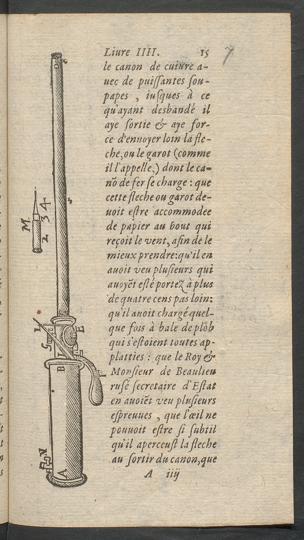 Liure IIII. 15 7
le canon de cuiure a-
uec de puissantes sou-
papes, iusques à ce
qu'ayant desbandé il
aye sortie & aye for-
ce d'ennoyer loin la fle-
che, ou le garot (comme
il l'appelle,) dont le ca-
nõ de fer se charge : que
cette flesche ou garot de-
uoit estre accommodee
de papier au bout qui
reçoit le vent, afin de le
mieux prendre: qu'il en
auoit veu plusieurs qui
auoyẽt esté portez à plus
de quatre cens pas loin:
qu'il auoit chargé quel-
que fois à bale de plõb
qui s'estoient toutes ap-
platties : que le Roy &
Monsieur de Beaulieu
rusé secretaire d'Estat
en auoiẽt veu plusieurs
espreuues, que l'œil ne
pouuoit estre si subtil
qu'il aperceust la flesche
au sortir du canon, que
A iiij
M
2 3 4
B
A